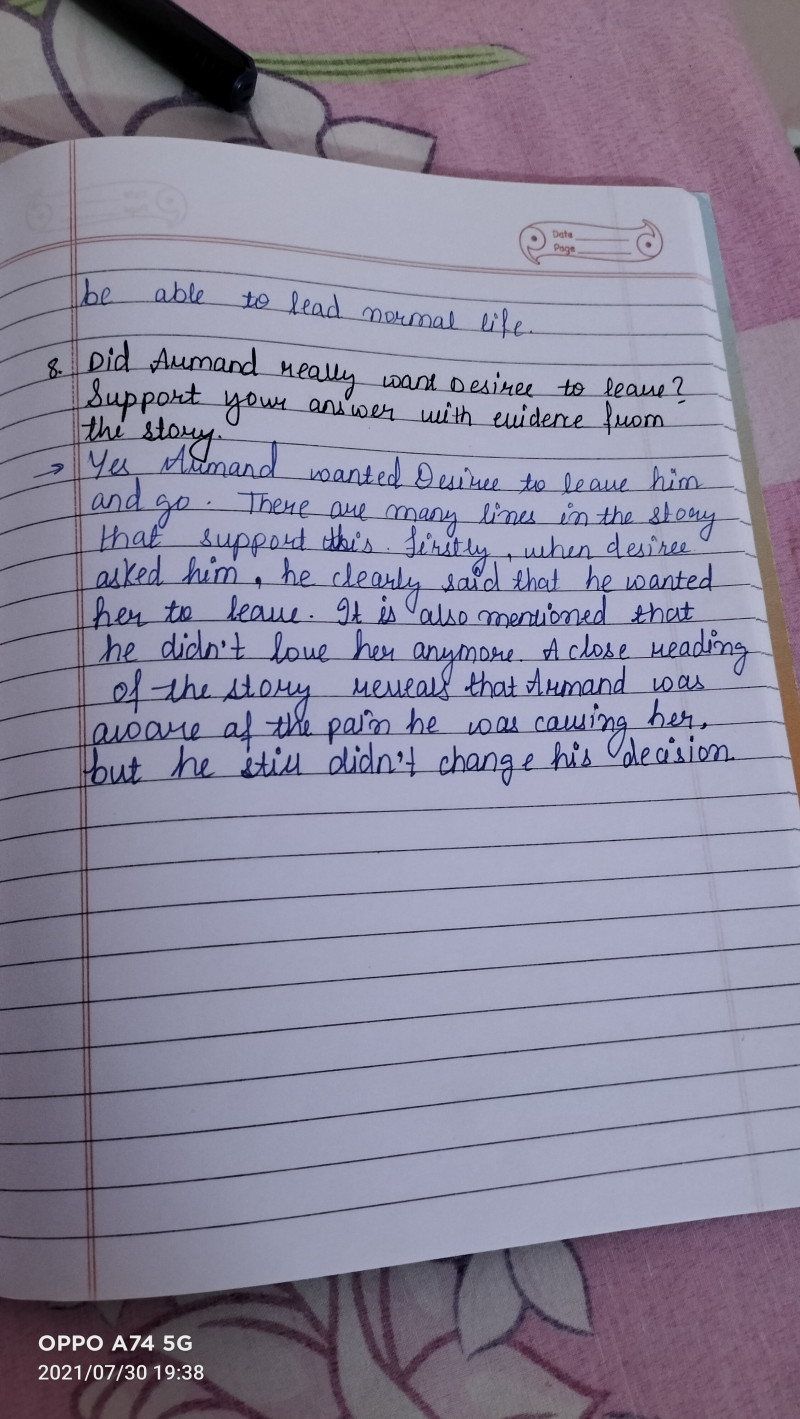 Date
Page
be able to lead normal life.
8. Did Armand really want Desiree to leave?
Support your answer with evidence from
the story.
→ Yes Armand wanted Desiree to leave him
and go. There are many lines in the story
that support this. firstly, when desiree
asked him, he clearly said that he wanted
her to leave. It is also mentioned that
he didn't love her anymore. A close reading
of the story reveals that Armand was
aware of the pain he was causing her,
but he still didn't change his decision.
OPPO A74 5G
2021/07/30 19:38